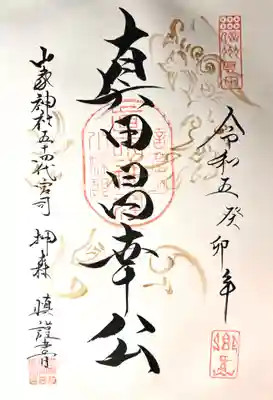 信州真田
令和五癸卯年
真田昌幸公
山家神社五十四代宮司 押森 慎謹書